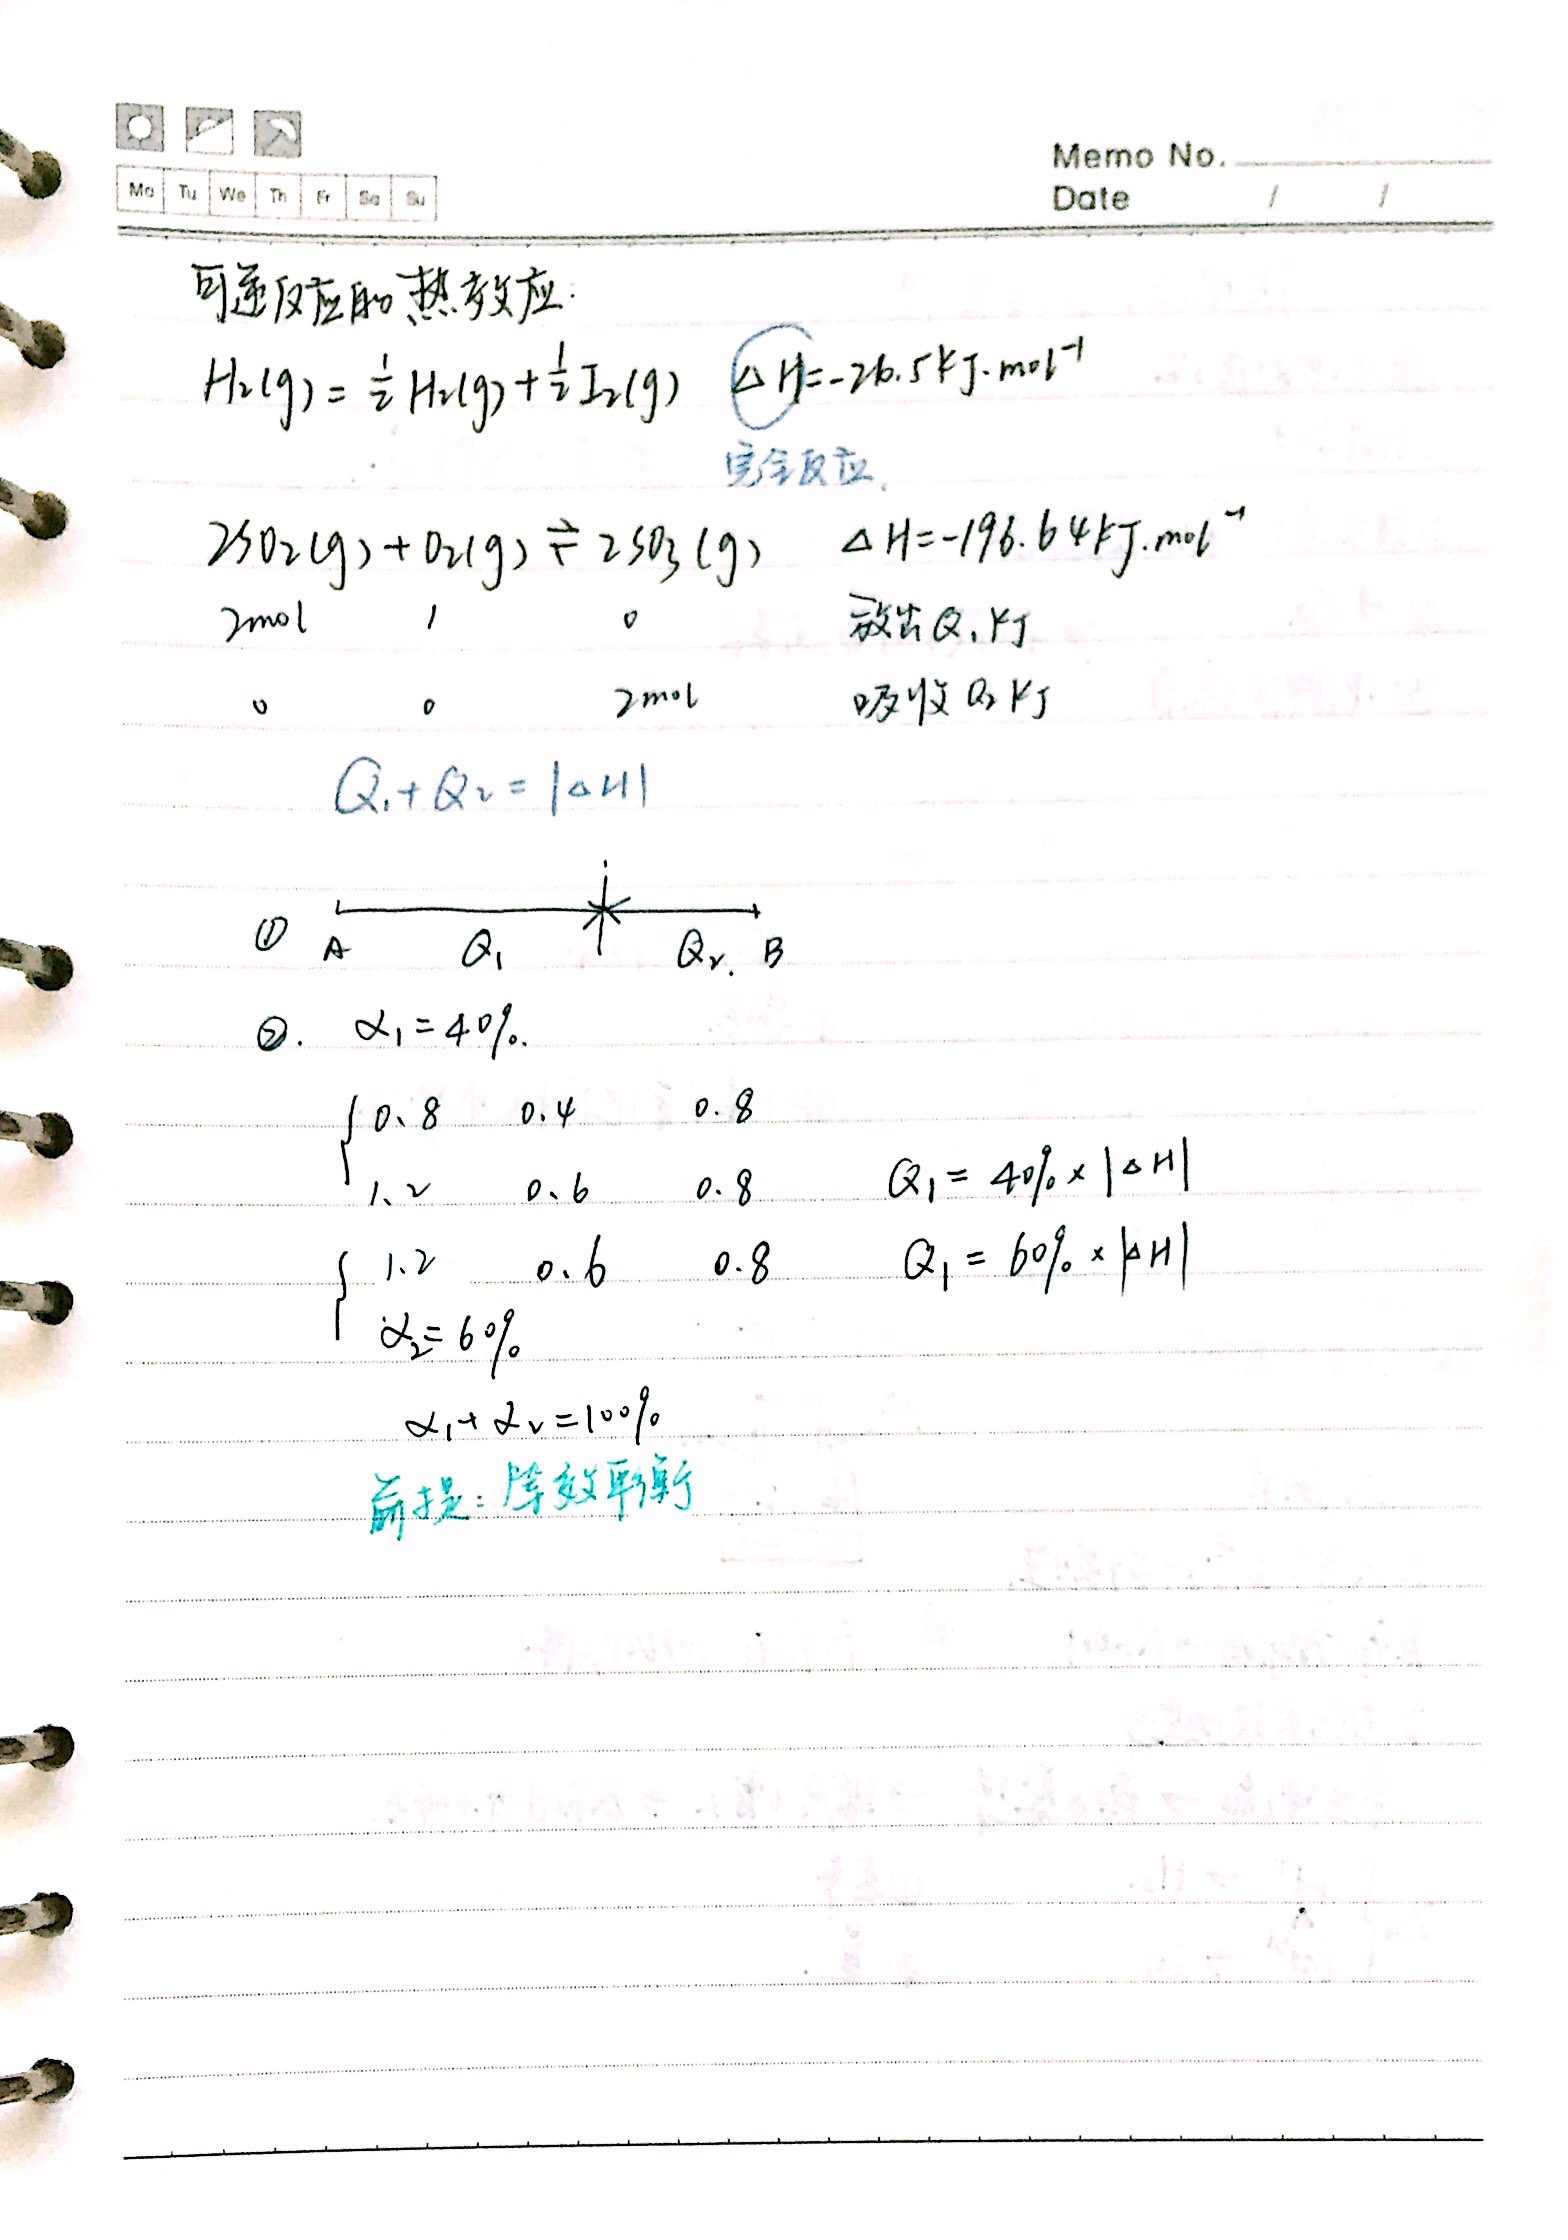 Memo No.
Mo Tu We Th Fr Sa Su
Date / /
可逆反应的热效应.
H₂(g) = ½ H₂(g) + ½ I₂(g) △H=-26.5kJ·mol⁻¹
完全反应.
2SO₂(g) + O₂(g) ⇌ 2SO₃(g) △H=-196.64kJ·mol⁻¹
2mol 1 0 放出Q₁kJ
0 0 2mol 吸收Q₂kJ
Q₁+Q₂=|△H|
① A Q₁ Q₂. B
②. α₁=40%.
0.8 0.4 0.8
1.2 0.6 0.8 Q₁ = 40% × |△H|
1.2 0.6 0.8 Q₁ = 60% × |△H|
α₂=60%
α₁+α₂=100%
前提：等效平衡